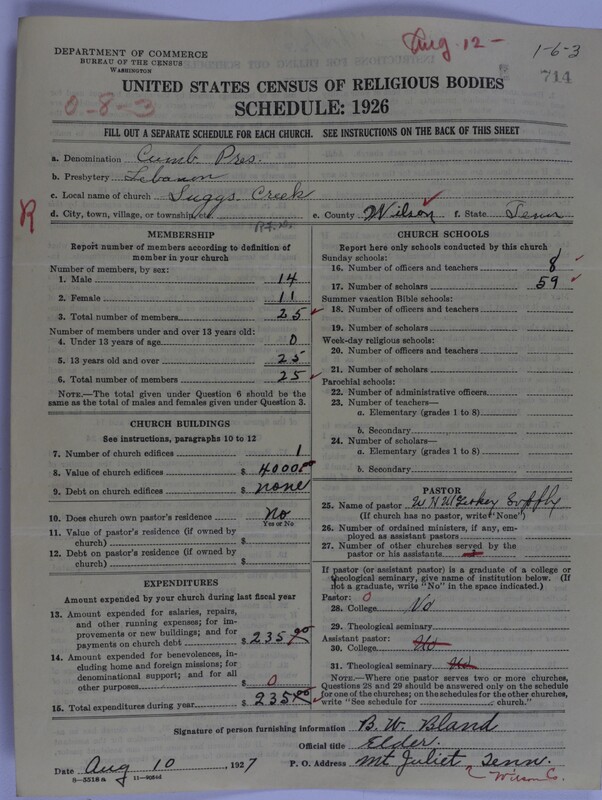 Aug. 12-
1-6-3
714
DEPARTMENT OF COMMERCE
BUREAU OF THE CENSUS
WASHINGTON
UNITED STATES CENSUS OF RELIGIOUS BODIES
0-8-3
SCHEDULE: 1926
FILL OUT A SEPARATE SCHEDULE FOR EACH CHURCH. SEE INSTRUCTIONS ON THE BACK OF THIS SHEET
a. Denomination Cumb Pres.
b. Presbytery Lebanon
c. Local name of church Suggs Creek
R
d. City, town, village, or township, etc. e. County Wilson f. State Tenn
MEMBERSHIP
Report number of members according to definition of member in your church
Number of members, by sex:
1. Male 14
2. Female 11
3. Total number of members 25
Number of members under and over 13 years old:
4. Under 13 years of age 0
5. 13 years old and over 25
6. Total number of members 25
NOTE.—The total given under Question 6 should be the same as the total of males and females given under Question 3.
CHURCH BUILDINGS
See instructions, paragraphs 10 to 12
7. Number of church edifices 1
8. Value of church edifices $ 4000.00
9. Debt on church edifices $ none
10. Does church own pastor's residence No
Yes or No
11. Value of pastor's residence (if owned by church) $
12. Debt on pastor's residence (if owned by church) $
EXPENDITURES
Amount expended by your church during last fiscal year
13. Amount expended for salaries, repairs, and other running expenses; for improvements or new buildings; and for payments on church debt $ 235.00
14. Amount expended for benevolences, including home and foreign missions; for denominational support; and for all other purposes $ 0
15. Total expenditures during year $ 235.00
CHURCH SCHOOLS
Report here only schools conducted by this church
Sunday schools:
16. Number of officers and teachers 8
17. Number of scholars 59
Summer vacation Bible schools:
18. Number of officers and teachers
19. Number of scholars
Week-day religious schools:
20. Number of officers and teachers
21. Number of scholars
Parochial schools:
22. Number of administrative officers
23. Number of teachers—
a. Elementary (grades 1 to 8)
b. Secondary
24. Number of scholars—
a. Elementary (grades 1 to 8)
b. Secondary
PASTOR
25. Name of pastor W H Supply
(If church has no pastor, write "None")
26. Number of ordained ministers, if any, employed as assistant pastors
27. Number of other churches served by the pastor or his assistants
If pastor (or assistant pastor) is a graduate of a college or theological seminary, give name of institution below. (If not a graduate, write "No" in the space indicated.)
Pastor: 0
28. College No
29. Theological seminary
Assistant pastor:
30. College No
31. Theological seminary No
NOTE.—Where one pastor serves two or more churches, Questions 28 and 29 should be answered only on the schedule for one of the churches; on the schedules for the other churches, write "See schedule for church."
Signature of person furnishing information B. W. Bland
Official title Elder.
Date Aug 10, 1927 P. O. Address Mt Juliet, Tenn.
Wilson Co.
8-5518 a